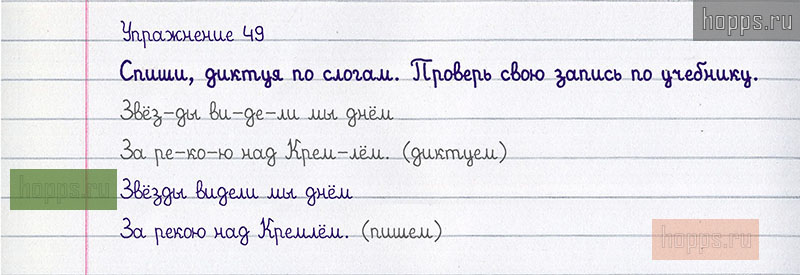 hopps.ru
Упражнение 49
Спиши, диктуя по слогам. Проверь свою запись по учебнику.
Звёз-ды ви-де-ли мы днём
За ре-ко-ю над Крем-лём. (диктуем)
hopps.ru
Звёзды видели мы днём
За рекою над Кремлём. (пишем)
hopps.ru